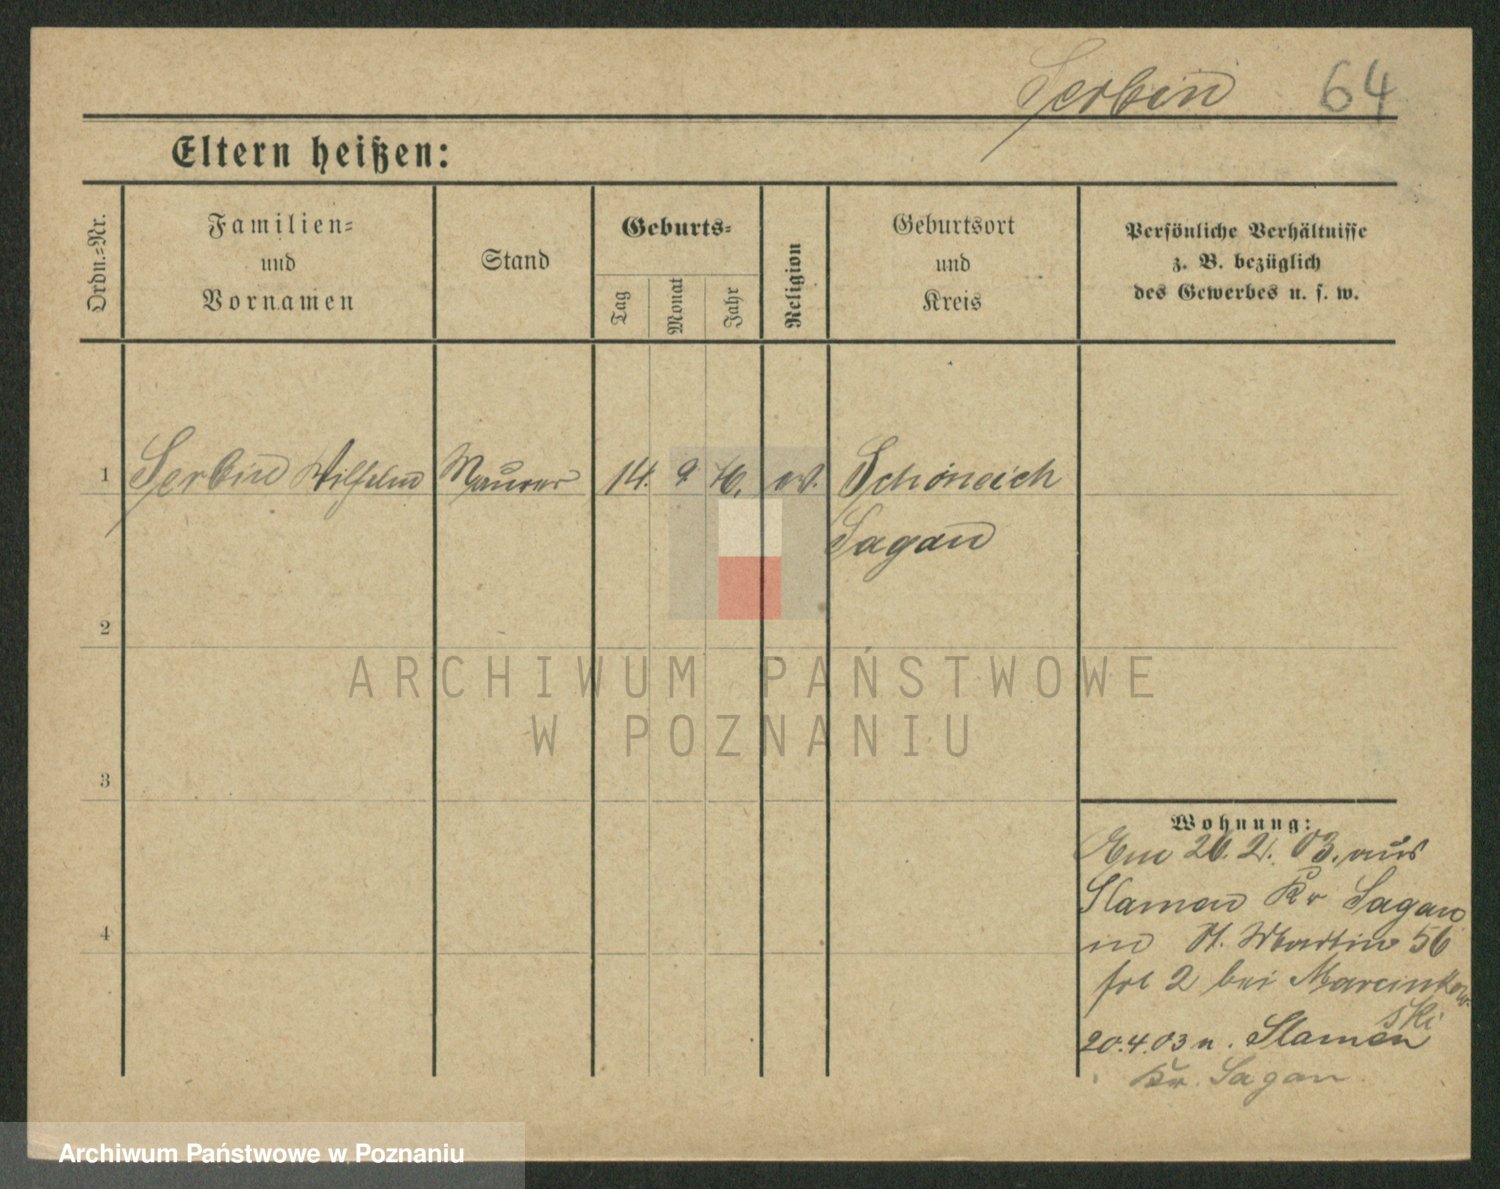 Serbin 64
Eltern heißen:
Ordn.=Nr.
Familien=
und
Vornamen
Stand
Geburts=
Tag
Monat
Jahr
Religion
Geburtsort
und
Kreis
Persönliche Verhältnisse
z. B. bezüglich
des Gewerbes u. s. w.
1 Serbin Wilhelm Maurer 14. 9 76. ev. Schöneich
Sagan
2
ARCHIWUM PAŃSTWOWE
W POZNANIU
3
4
Wohnung:
26. 2. 03. aus
Slamen Kr Sagan
in St. Martin 56
2 bei Marcinkow-
ski
20.4.03 n. Slamen
Kr. Sagan
Archiwum Państwowe w Poznaniu